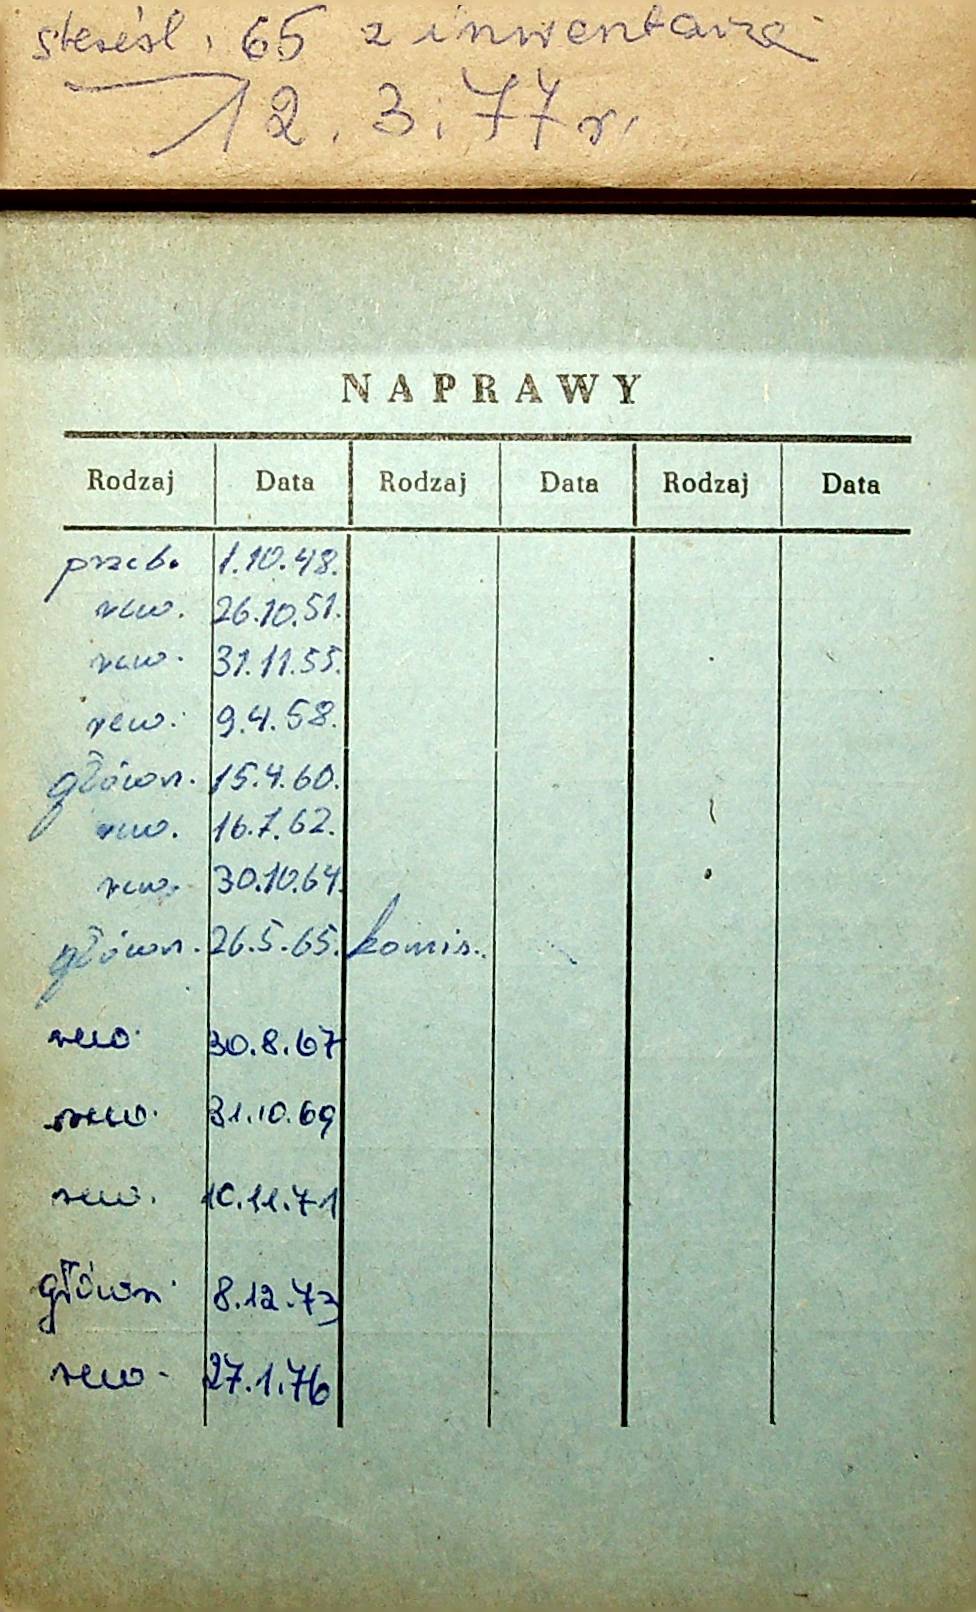 skreśl. 65 z inwentarza
12.3.77 r.
NAPRAWY
Rodzaj Data Rodzaj Data Rodzaj Data
przeb. 1.10.48.
rew. 26.10.51.
rew. 31.11.55.
rew. 9.4.58.
główn. 15.4.60.
rew. 16.7.62.
rew. 30.10.64.
główn. 26.5.65. komis.
rew. 30.8.67
rew. 31.10.69
rew. 10.11.71
główn. 8.12.73
rew. 27.1.76